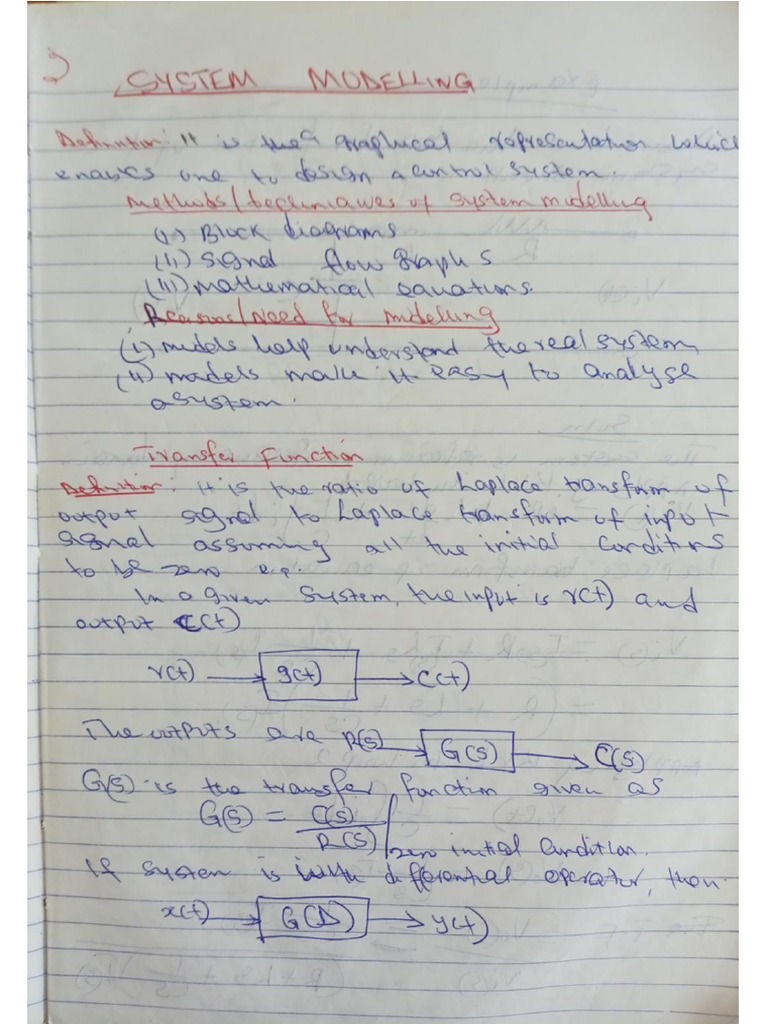 SYSTEM MODELLING
Definition: It is the graphical representation which
enables one to design a control system.
Methods/techniques of system modelling
(i) Block diagrams
(ii) signal flow graphs
(iii) mathematical equations.
Reasons/Need for modelling
(i) models help understand the real system
(ii) models make it easy to analyse
a system.
Transfer Function
Definition: It is the ratio of Laplace transform of
output signal to Laplace transform of input
signal assuming all the initial conditions
to be zero e.g.
In a given system, the input is r(t) and
output C(t)
r(t) g(t) C(t)
The outputs are R(s) G(s) C(s)
G(s) is the transfer function given as
G(s) = C(s)
R(s) | zero initial condition.
If system is with differential operator, then
x(t) G(D) y(t)